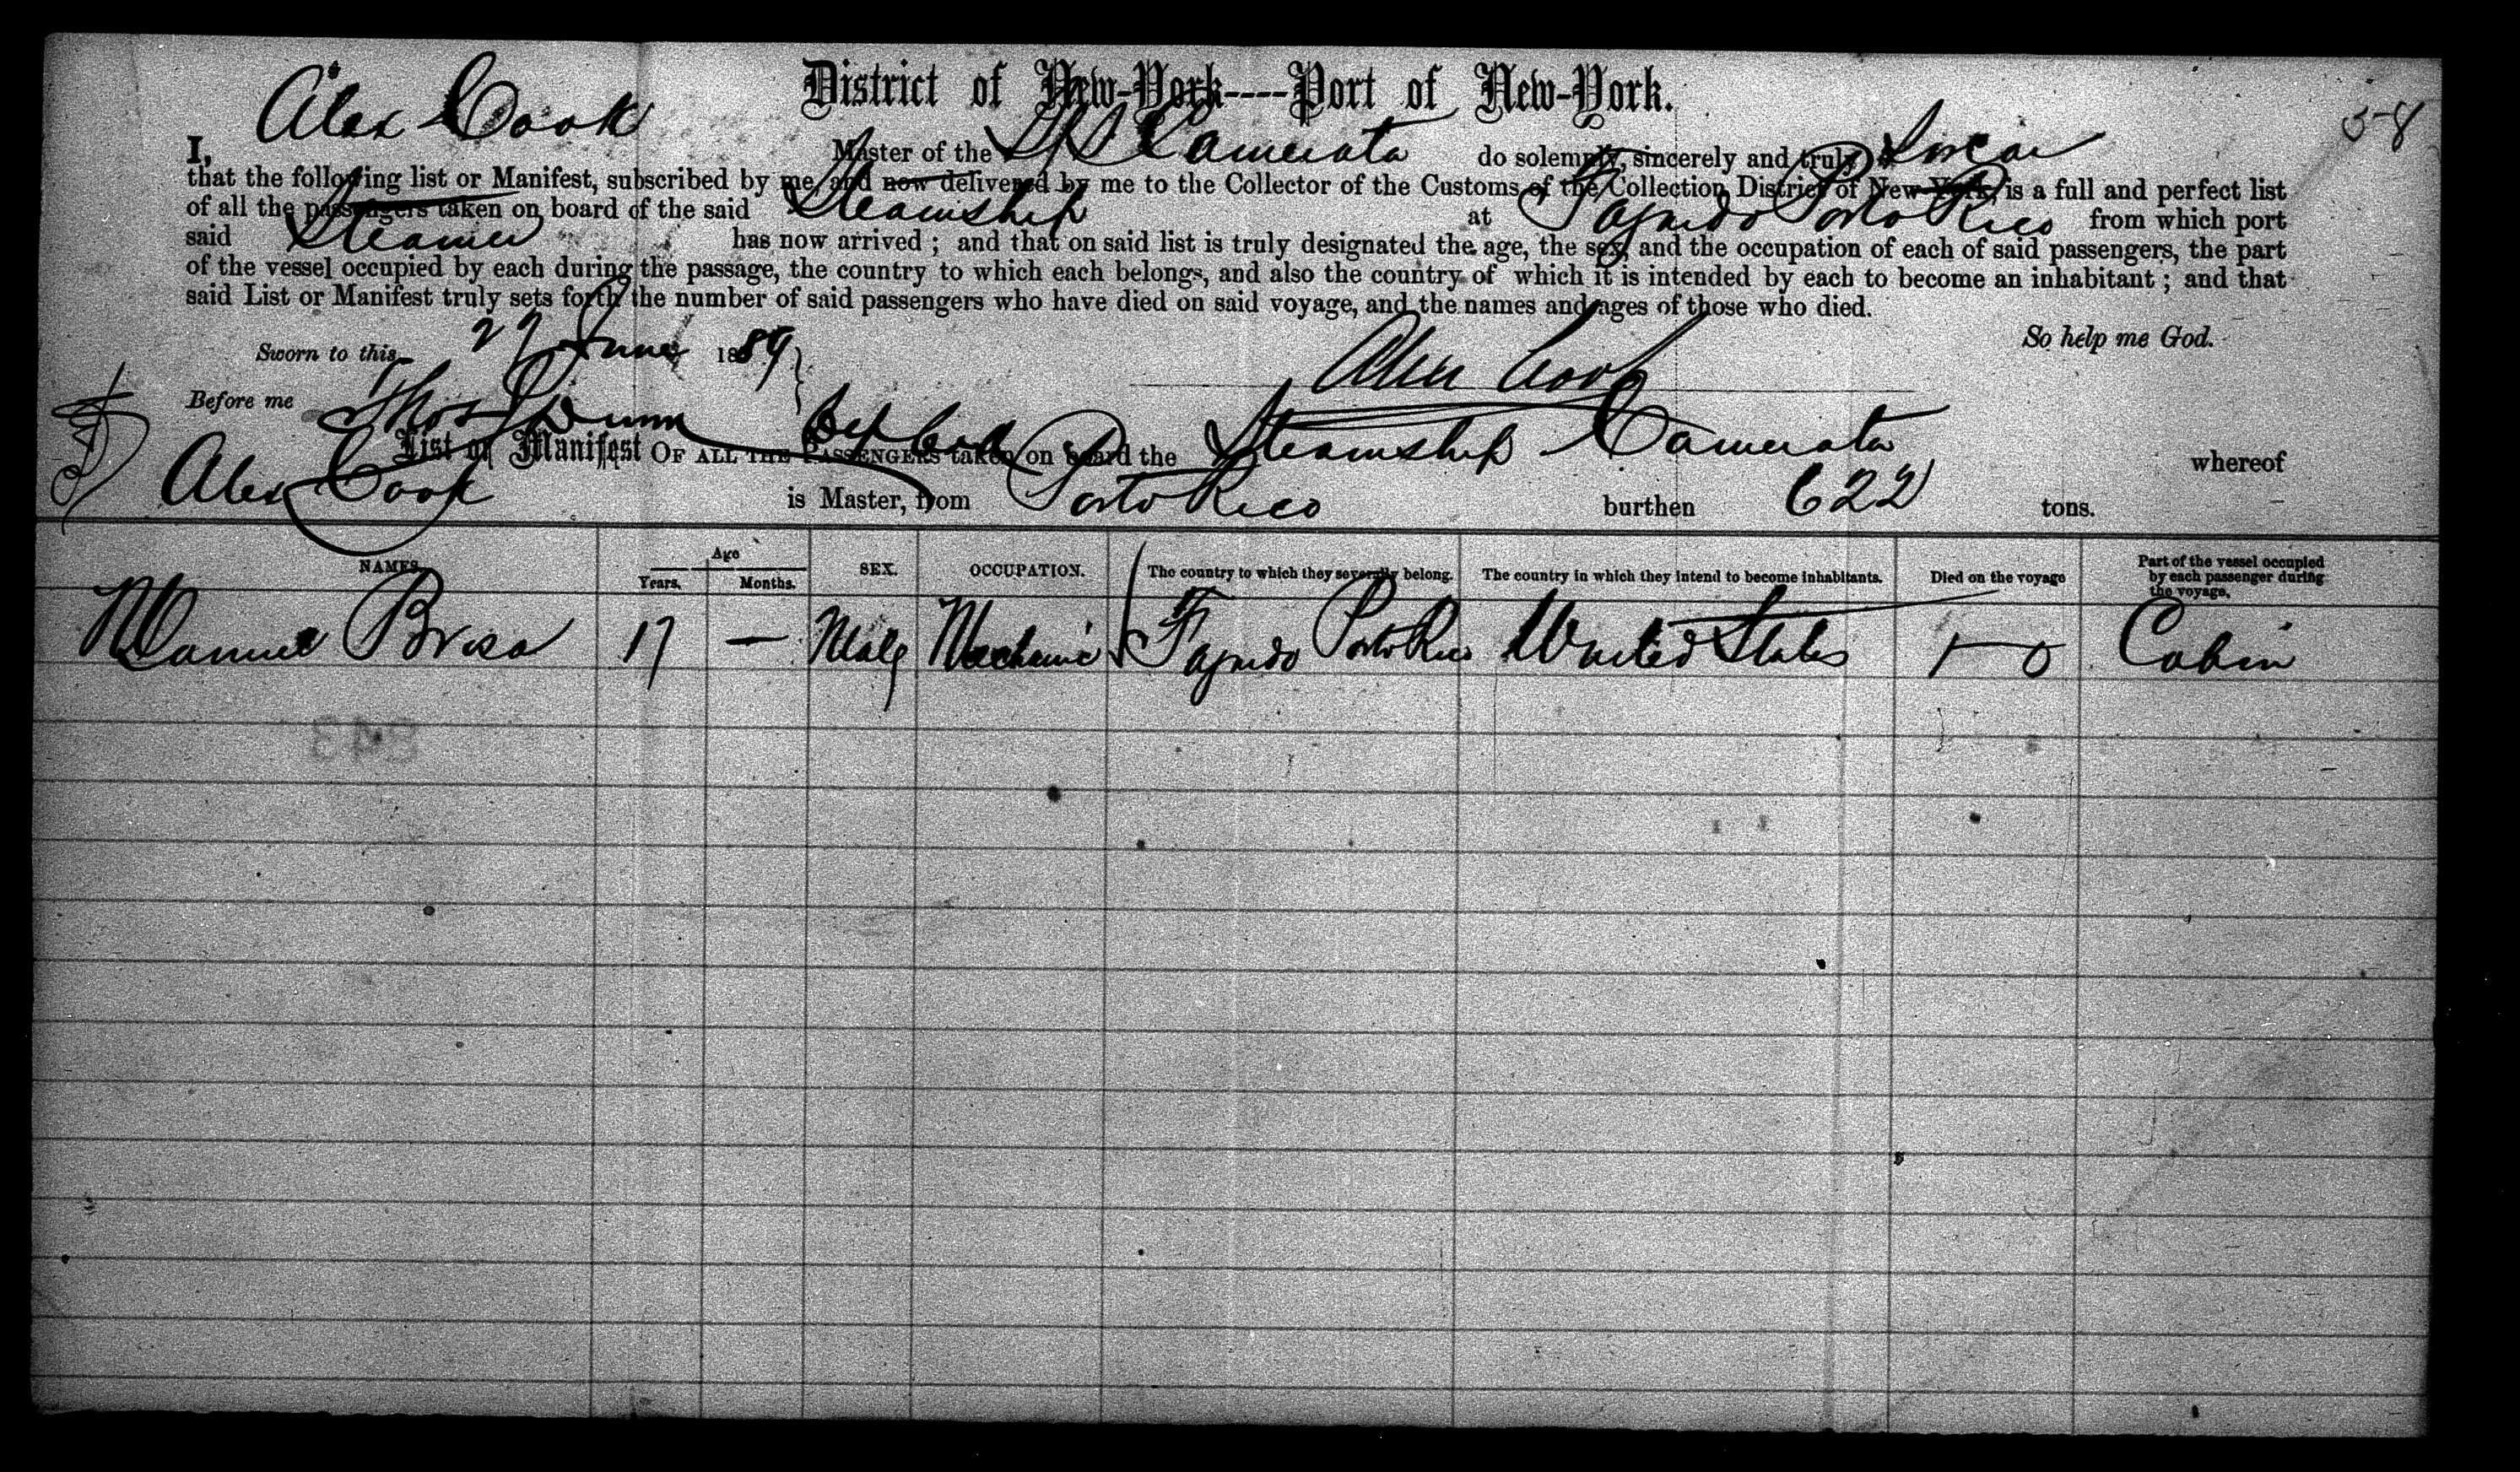 District of New-York----Port of New-York.
58
I, Alex Cook Master of the S/S Camerata do solemnly, sincerely and truly Swear
that the following list or Manifest, subscribed by me, and now delivered by me to the Collector of the Customs of the Collection District of New York, is a full and perfect list
of all the passengers taken on board of the said Steamship at Fajardo Porto Rico from which port
said Steamer has now arrived ; and that on said list is truly designated the age, the sex, and the occupation of each of said passengers, the part
of the vessel occupied by each during the passage, the country to which each belongs, and also the country of which it is intended by each to become an inhabitant ; and that
said List or Manifest truly sets forth the number of said passengers who have died on said voyage, and the names and ages of those who died.
So help me God.
Sworn to this 27 June 1889
Alex Cook
Before me Thos Dunn
List or Manifest OF ALL THE PASSENGERS taken on board the Steamship Camerata whereof
Alex Cook is Master, from Porto Rico burthen 622 tons.
NAMES. Age Years. Months. SEX. OCCUPATION. The country to which they severally belong. The country in which they intend to become inhabitants. Died on the voyage Part of the vessel occupied by each passenger during the voyage.
Manuel 17 — Male Mechanic Fajardo Porto Rico United States Cabin
843